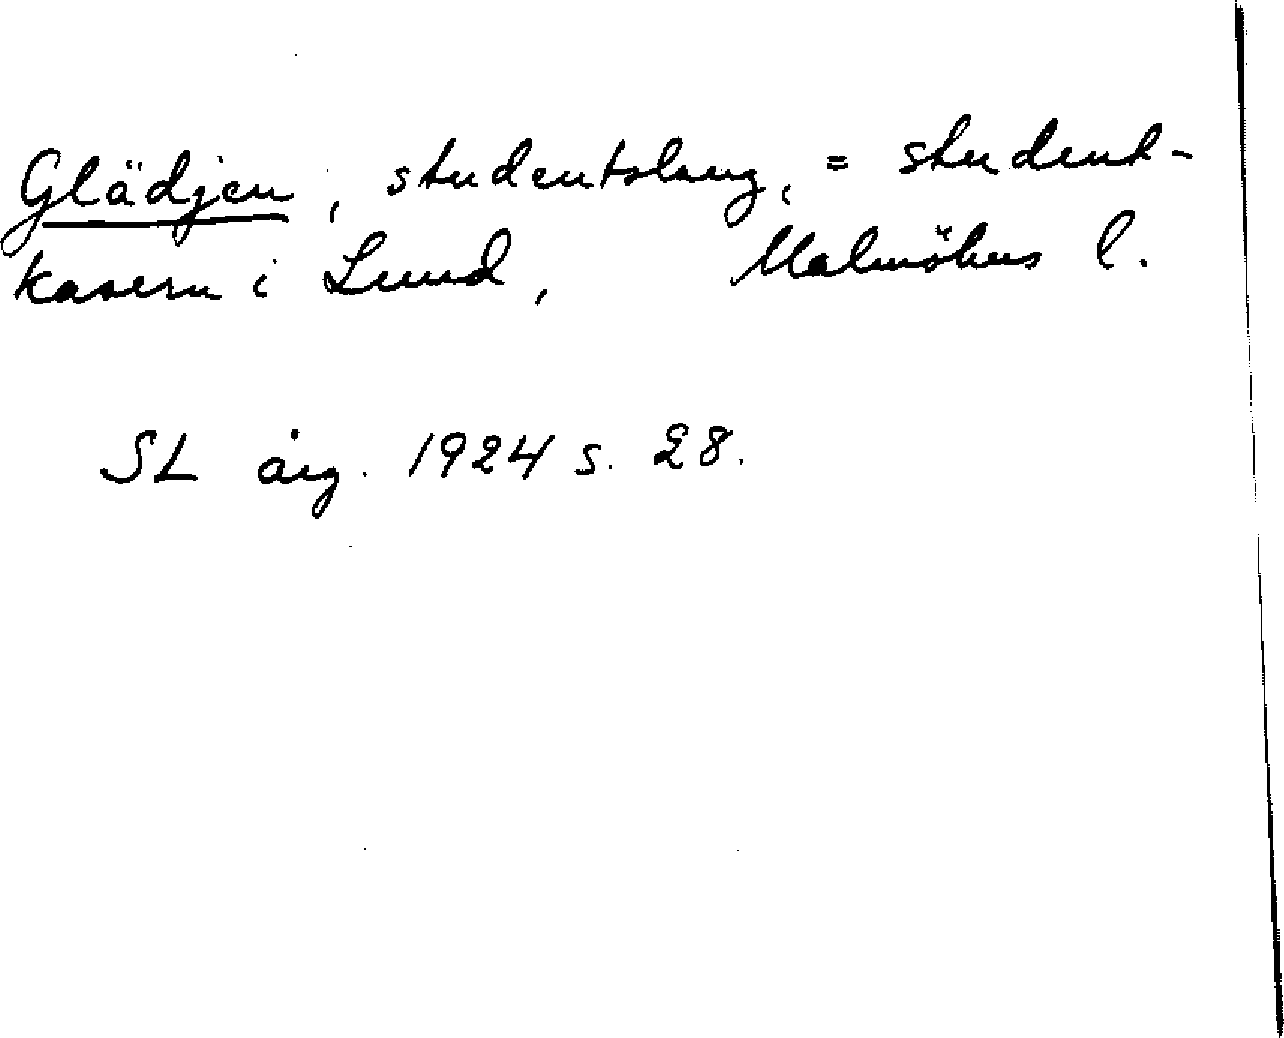 Glädjen, studentslang, = student-
kasern i Lund, Malmöhus l.
SL årg. 1924 s. 28.